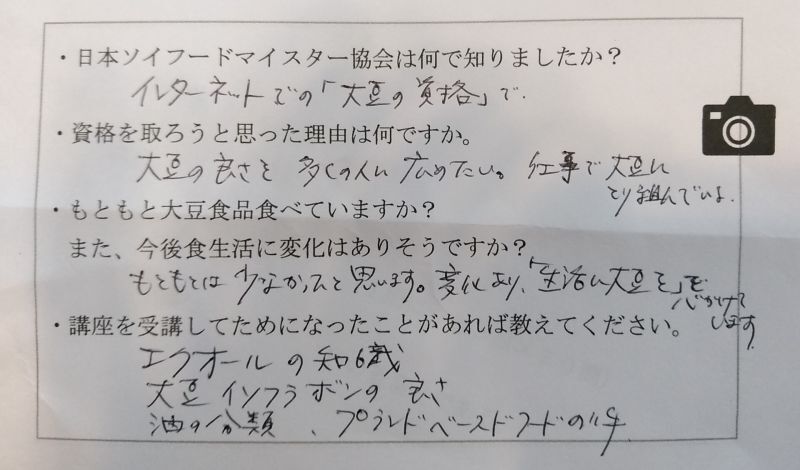 ・日本ソイフードマイスター協会は何で知りましたか？
インターネットでの「大豆の資格」で.
・資格を取ろうと思った理由は何ですか。
大豆の良さを 多くの人に 広めたい。 仕事で 大豆に
とり組んでいる.
・もともと大豆食品食べていますか？
また、今後食生活に変化はありそうですか？
もともとは 少なかったと思います。変化あり、「生活に大豆を」を
心がけて
います
・講座を受講してためになったことがあれば教えてください。
エクオールの知識
大豆イソフラボンの良さ
油の分類、プラントベースドフードの